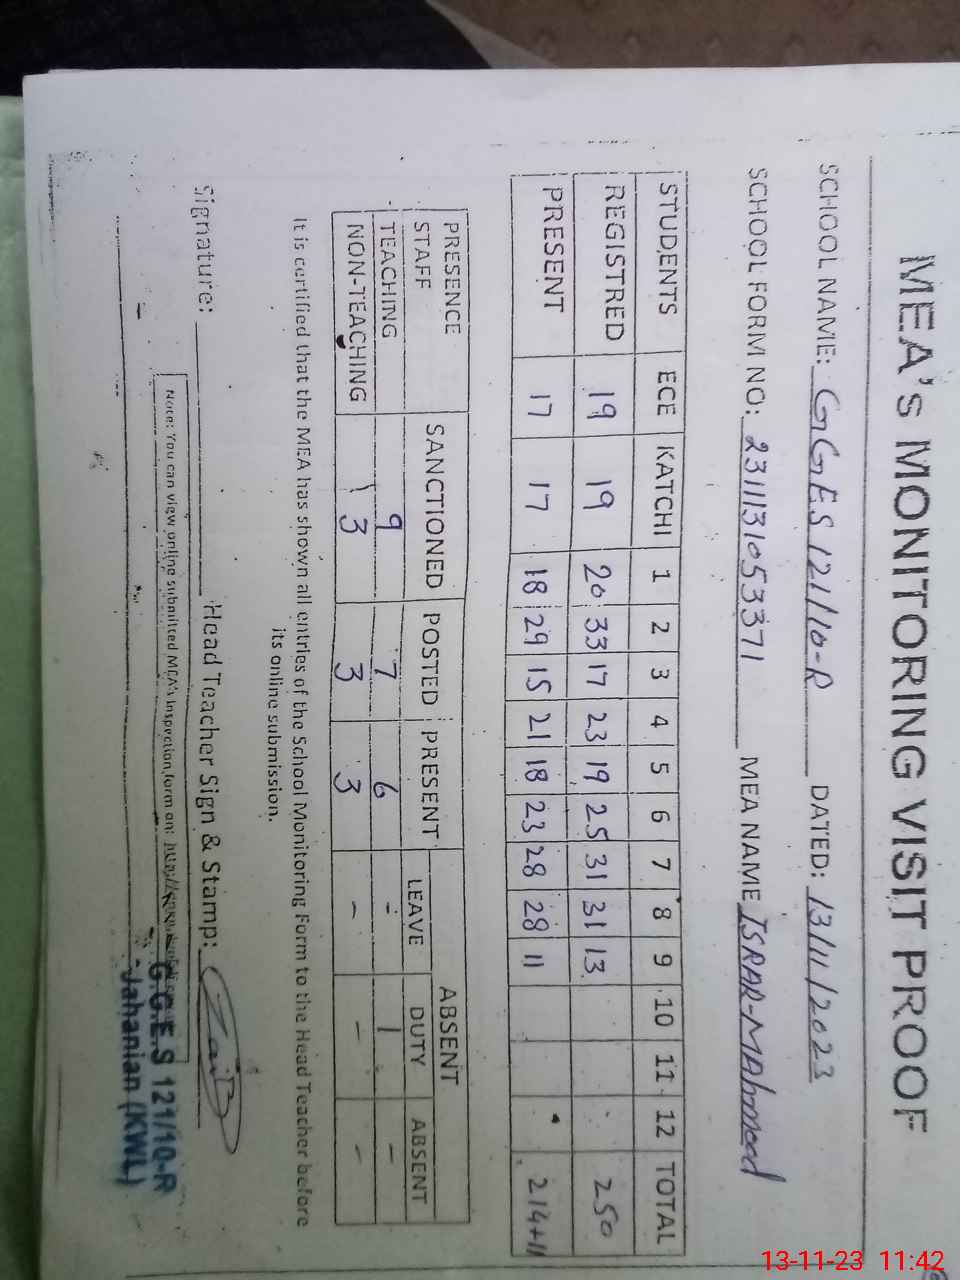 MEA's MONITORING VISIT PROOF
SCHOOL NAME: GGES 121/10-R DATED: 13/11/2023
SCHOOL FORM NO: 2311131053371 MEA NAME ISRAR-MAhmood
STUDENTS ECE KATCHI 1 2 3 4 5 6 7 8 9 10 11 12 TOTAL
REGISTRED 19 19 20 33 17 23 19 25 31 31 13 250
PRESENT 17 17 18 29 15 21 18 23 28 28 11 214+11
PRESENCE SANCTIONED POSTED PRESENT ABSENT
STAFF LEAVE DUTY ABSENT
TEACHING 9 7 6 - 1 -
NON-TEACHING 3 3 3 - - -
It is certified that the MEA has shown all entries of the School Monitoring Form to the Head Teacher before
its online submission.
Signature: Head Teacher Sign & Stamp:
Note: You can view online submitted MEA's inspection form on:
G.G.E.S 121/10-R
Jahanian (KWL)
13-11-23 11:42